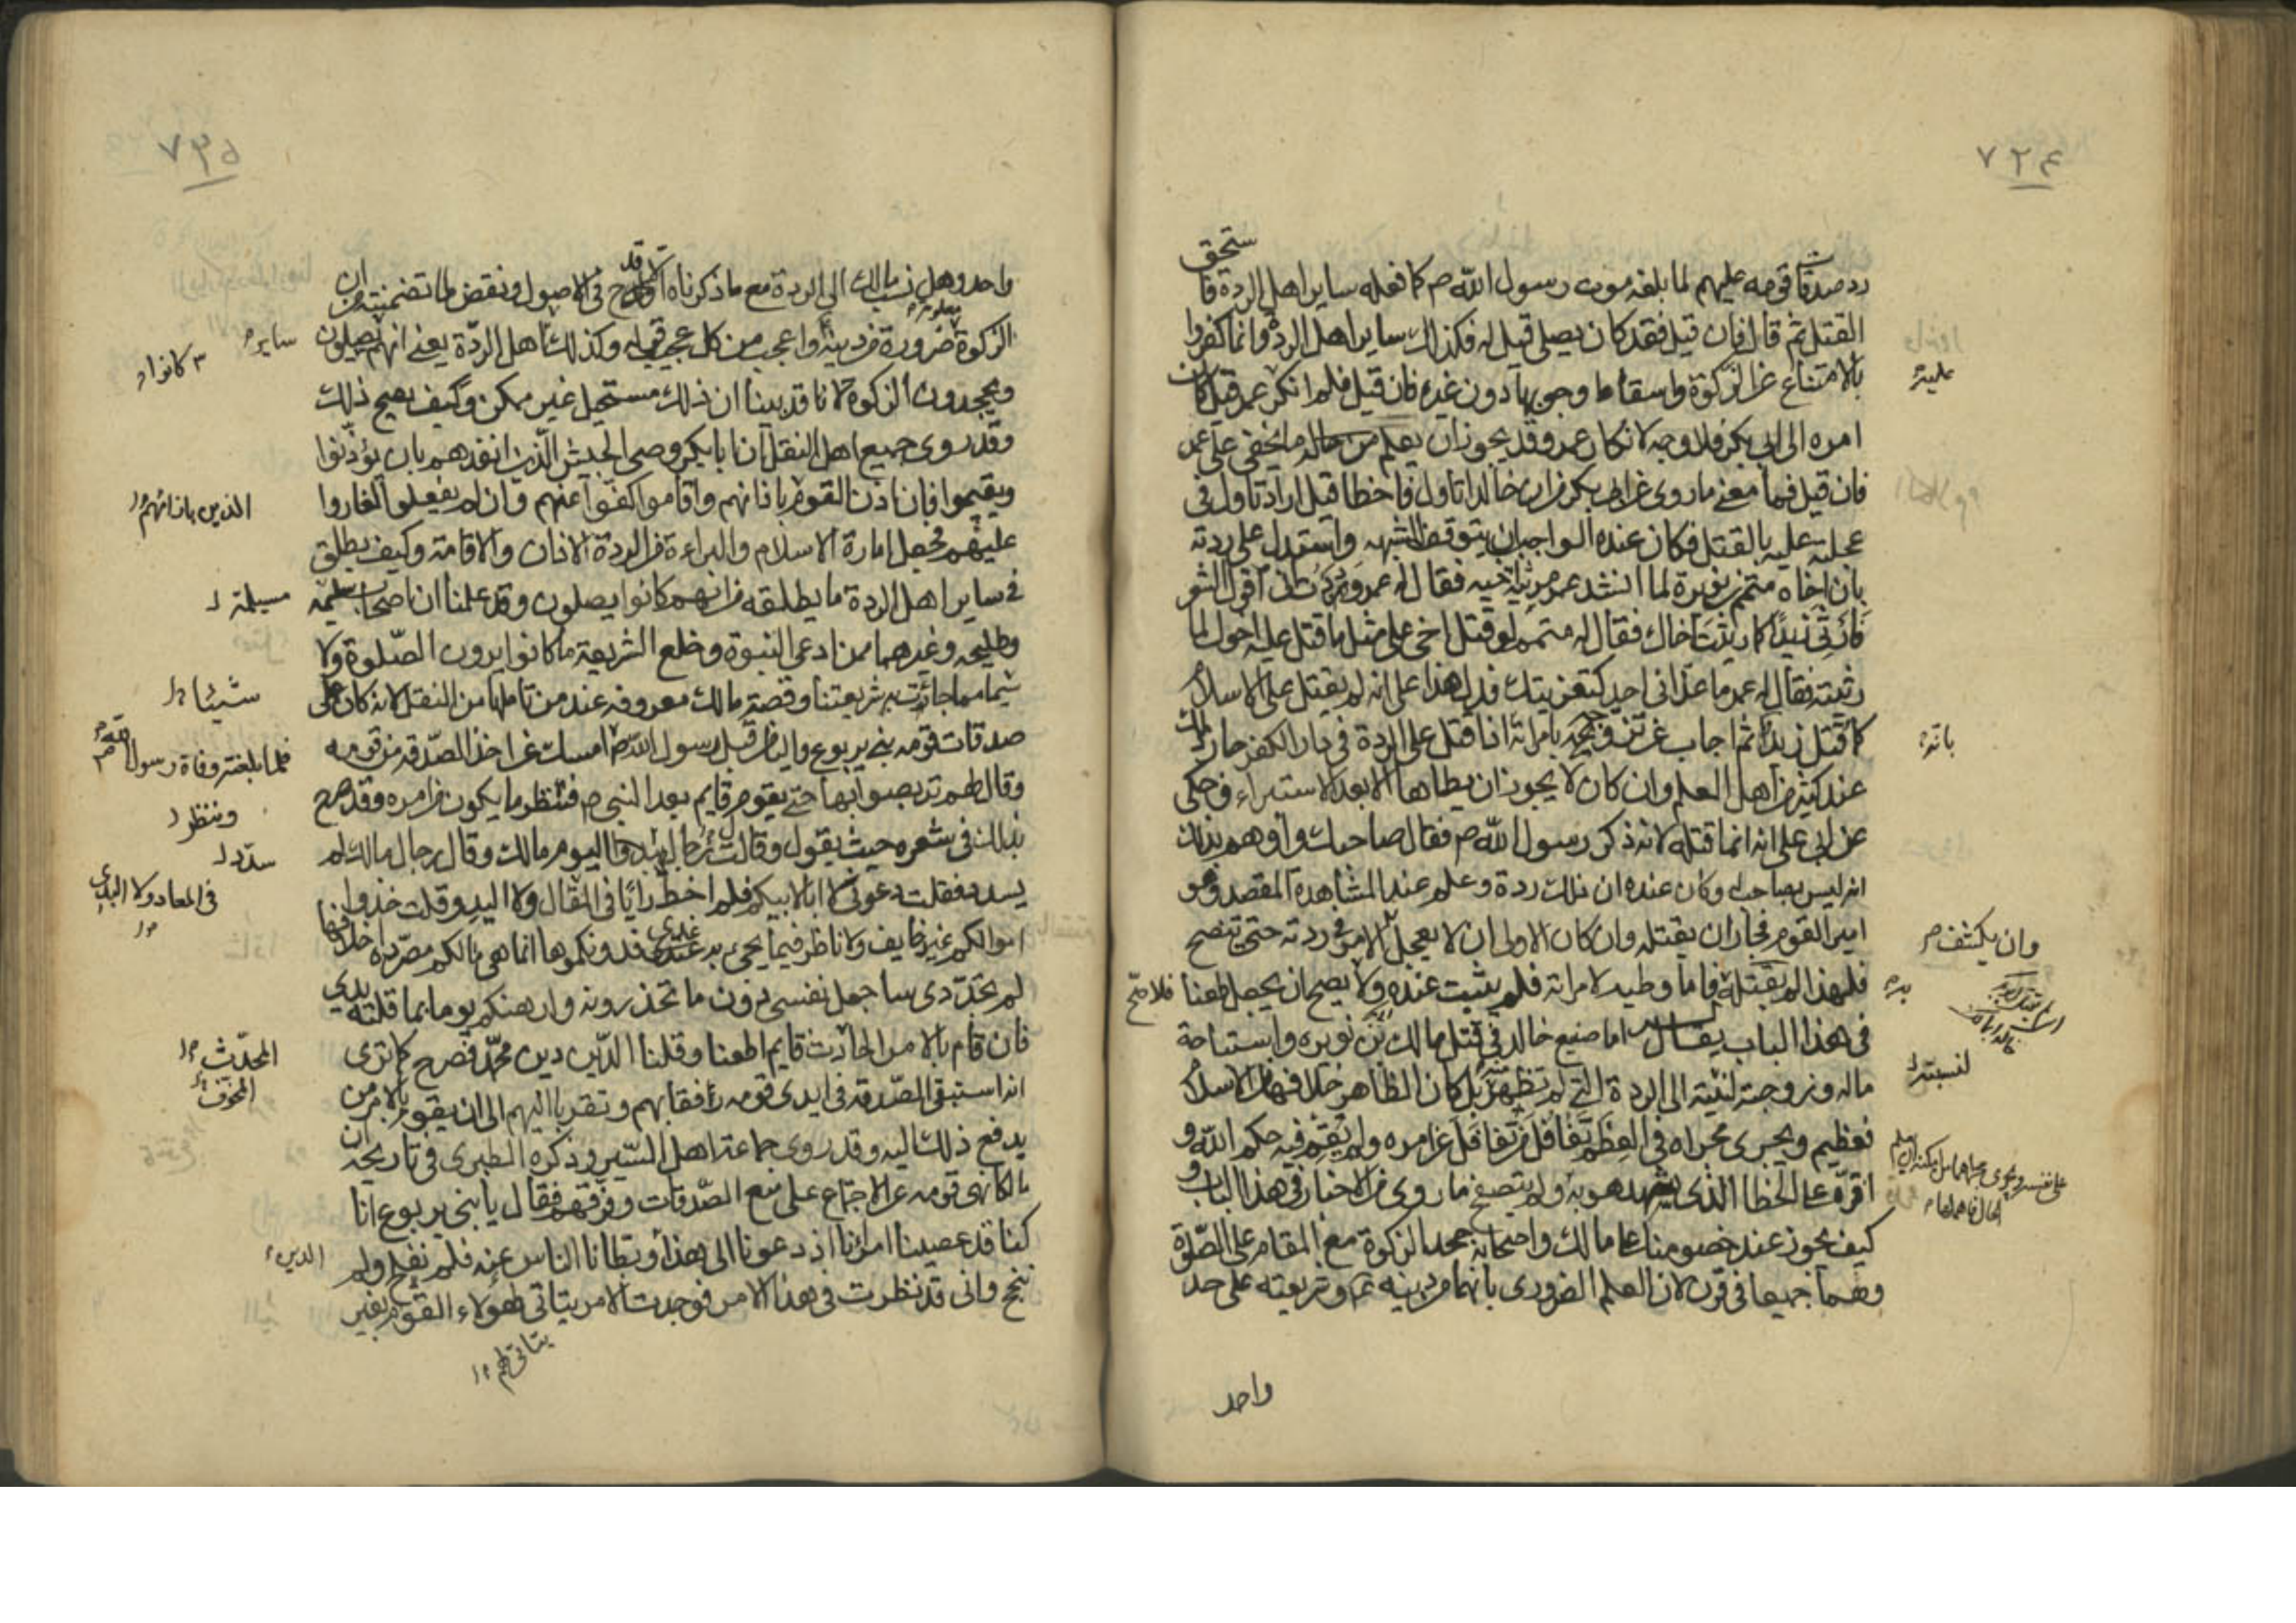 ٧٢٤
رد صدقات قومه عليهم لما بلغه موت رسول الله ص كما فعله ساير اهل الردة فاستحق
القتل ثم قال فان قيل فقد كان يصلى قيل له فكذلك ساير اهل الردة وانما كفروا
بالامتناع عن الزكوة واسقاط وجوبها دون غيره فان قيل فلم انكر عمر قيل كان
امره الى ابى بكر فلا وجه لانكار عمر وقد يجوز ان يعلم من حاله ما يخفى على عمر
فان قيل فما معنى ما روى عن ابى بكر من ان خالدا تاول فاخطا قيل اراد تاول فى
عجلته عليه بالقتل فكان عنده الواجب ان يتوقف للشبهه واستدل على ردته
بان اخاه متمم بن نويرة لما انشد عمر مرثية اخيه فقال له عمر وددت انى اقول الشعر
فارثى زيدا كما رثيت اخاك فقال له متمم لو قتل اخى على مثل ما قتل عليه اخوك لما
رثيته فقال له عمر ما عزانى احد كتعزيتك فدل هذا على انه لم يقتل على الاسلام
كما قتل زيد ثم اجاب عن تزويجه بامراته اذا قتل على الردة فى دار الكفر جاز ذلك
عند كثير من اهل العلم وان كان لا يجوز ان يطاها الا بعد الاستبراء وحكى
عن ابى على انه انما قتله لانه ذكر رسول الله ص فقال صاحبك واوهم بذلك
انه ليس بصاحب له وكان عنده ان ذلك ردة وعلم عند المشاهدة المقصد وهو
امير القوم فجاز ان يقتله وان كان الاولى ان لا يعجل الامر فى ردته حتى تتضح
فلهذا لم يقتله فاما وطيه لامراته فلم يثبت عنده ولا يصح ان يجعل طعنا
فى هذا الباب يقال له اما صنيع خالد فى قتل مالك بن نويره واستباحة
ماله وزوجته لنسبته الى الردة التى لم تظهر بل كان الظاهر خلافها من الاسلام
فعظيم ويجرى مجراه فى العظم تغافل من تغافل عن امره ولم يقم فيه حكم الله و
اقره على الخطا الذى شهد هو به ولم يتصفح ما روى من الاخبار فى هذا الباب و
كيف يجوز عند خصومنا على مالك واصحابه جحد الزكوة مع المقام على الصلوة
وهما جميعا فى قرن لان العلم الضرورى بانهما من دينه ع وشريعته على حد
واحد
عليه
باته
وان يكشف
لنسبته
٧٢٥
واحد وهل نسب مالك الى الردة مع ما ذكرناه الا قدح فى الاصول ونقض لما تضمنته من ان
الزكوة معلومة ضرورة من دينه واعجب من كل عجيب قوله وكذلك اهل الردة يعنى انهم يصلون
ويجحدون الزكوة لانا قد بينا ان ذلك مستحيل غير ممكن وكيف يصح ذلك
وقد روى جميع اهل النقل ان ابا بكر وصى الجيش الذين انفذهم بان يؤذنوا
ويقيموا فان اذن القوم باذانهم واقاموا كفوا عنهم وان لم يفعلوا اغاروا
عليهم فجعل امارة الاسلام والبراءة من الردة الاذان والاقامة وكيف يطلق
فى ساير اهل الردة ما يطلقه من انهم كانوا يصلون وقد علمنا ان اصحاب مسيلمة
وطليحه وغيرهما ممن ادعى النبوة وخلع الشريعة ما كانوا يرون الصلوة ولا
شيا مما جائت به شريعتنا وقصة مالك معروفه عند من تاملها من النقل لانه كان على
صدقات قومه بنى يربوع واليا من قبل رسول الله ص امسك عن اخذ الصدقه من قومه
وقال لهم تربصوا بها حتى يقوم قايم بعد النبى ص فننظر ما يكون من امره وقد صرح
بذلك فى شعره حيث يقول وقال رجال سدد اليوم مالك وقال رجال مالك لم
يسدد فقلت دعونى لا ابا لابيكم فلم اخط رايا فى المقال ولا اليد وقلت خذوا
اموالكم غير خايف ولا ناظر فيما يجىء به غدى فدونكموها انما هى مالكم مصررة اخلافها
لم تجدد ى ساجعل نفسى دون ما تحذرونه وارهنكم يوما بما قلته يدى
فان قام بالامر الحادث قايم اطعنا وقلنا الدين دين محمد فصرح كما ترى
انه استبقى الصدقه فى ايدى قومه رفقا بهم وتقربا اليهم الى ان يقوم بالامر من
يدفع ذلك اليه وقد روى جماعة اهل السير وذكره الطبرى فى تاريخه ان
مالكا نهى قومه عن الاجتماع على منع الصدقات وفرقهم فقال يا بنى يربوع انا
كنا قد عصينا امراءنا اذ دعونا الى هذا وبطانا الناس عنه فلم نفلح ولم
ننجح وانى قد نظرت فى هذا الامر فوجدت الامر يتاتى لهؤلاء القوم بغير
يتاتى لهم
ساير
كانوا
الذين باذانهم
مسيلمة
شيئا
فلما بلغته وفاة رسول الله
وننظر
سدد
فى المعاد ولا اليدى
المحدث
المخوف
الدين